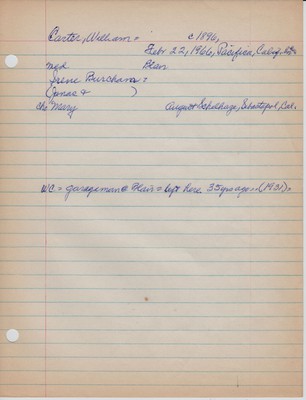 Carter, William = c1896,
Feb 22, 1966, Pacifica, Calif.
mgd Blair
Irene Burcham =
(James & )
Ch: Mary August Schalhage, Sebastopol, Cal.
WC = garageman @ Blair = left here 35 yrs ago -- (1931).